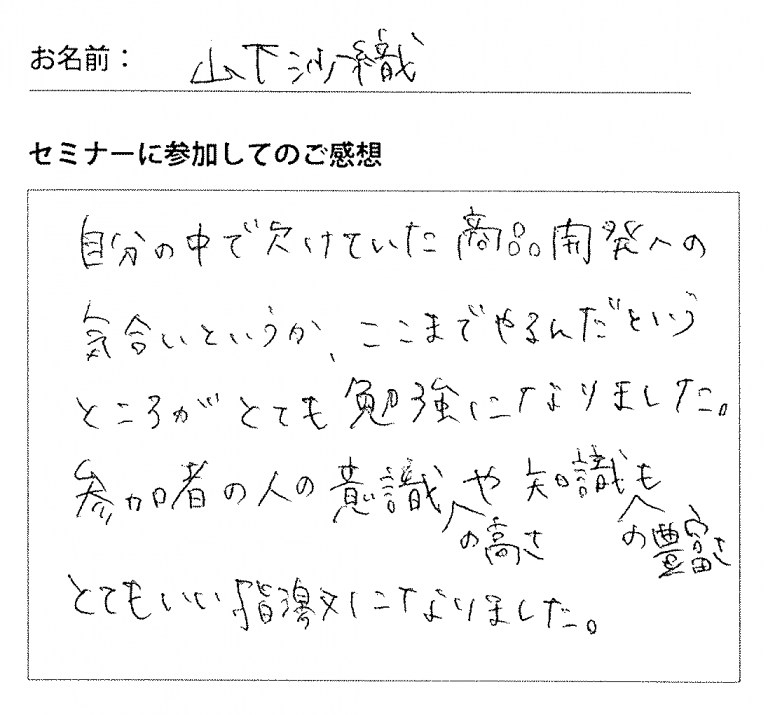 お名前： 山下沙織
セミナーに参加してのご感想
自分の中で欠けていた商品開発への
気合いというか、ここまでやるんだという
ところがとても勉強になりました。
参加者の人の意識や知識も
の高さ の豊富さ
とてもいい になりました。